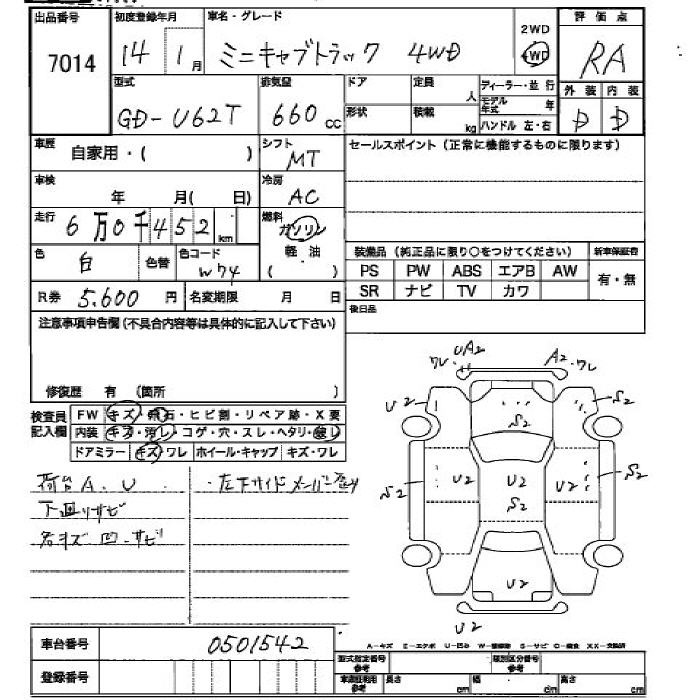 出品番号 初度登録年月 車名・グレード 2WD 評価点
7014 14 1月 ミニキャブトラック 4WD 4WD RA
型式 排気量 ドア 定員 人 ディーラー・並行 外装 内装
GD-U62T 660cc 形状 積載 kg モデル年式 年 D D
ハンドル 左・右
車歴 自家用・( ) シフト MT セールスポイント(正常に機能するものに限ります)
車検 年 月( 日) 冷房 AC
走行 6万0千452km 燃料 ガソリン
軽油
( )
色 白 色替 色コード W74
装備品(純正品に限り○をつけてください) 新車保証書
PS PW ABS エアB AW 有・無
SR ナビ TV カワ
R券 5,600円 名変期限 月 日 後日品
注意事項申告欄(不具合内容等は具体的に記入して下さい)
修復歴 有 (箇所 )
検査員記入欄 FW キズ・飛石・ヒビ割・リペア跡・X要
内装 キズ・汚レ・コゲ・穴・スレ・ヘタリ・破レ
ドアミラー キズ・ワレ ホイール・キャップ キズ・ワレ
荷台A.U ・左下サイドメンバー
下廻りサビ
各キズ凹・サビ
UA2 A2・ワレ
ワレ
U2 S2
S2
U2 U2 U2 S2
S2 S2
U2
U2
A-キズ E-エクボ U-凹み W-補修跡 S-サビ C-腐食 XX-交換済
車台番号 0501542
型式指定番号 参考 類別区分番号 参考
登録番号 車検証明用 参考 長さ cm 幅 cm 高さ cm